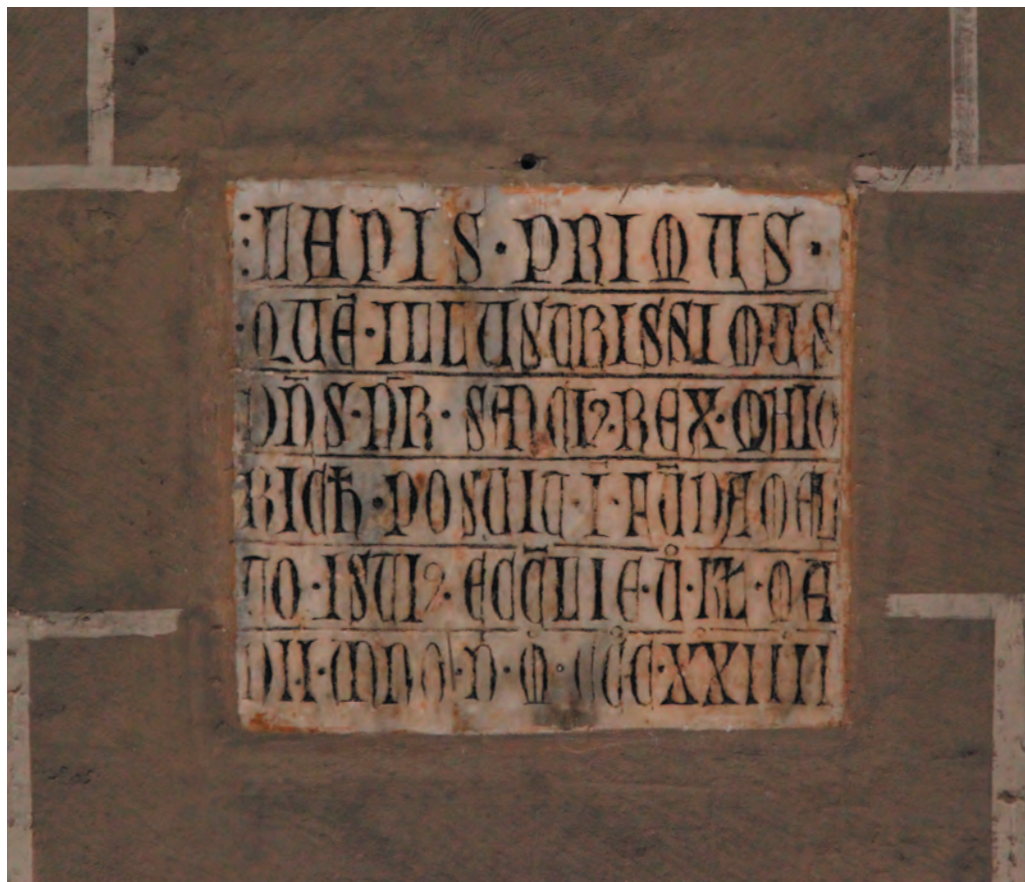 :LAPIS·PRIMUS·
·QUĒ·ILLUSTRISSIMUS
DÑS·NR̄·SANCI9·REX·MAIO
RICĦ·POSUIT·Ī·FŪDAMEN
TO·ISTI9·ECC̄LIE·Ů·KL·MA
DII·ANNO·D·M̊·CC̊C·XXIIII